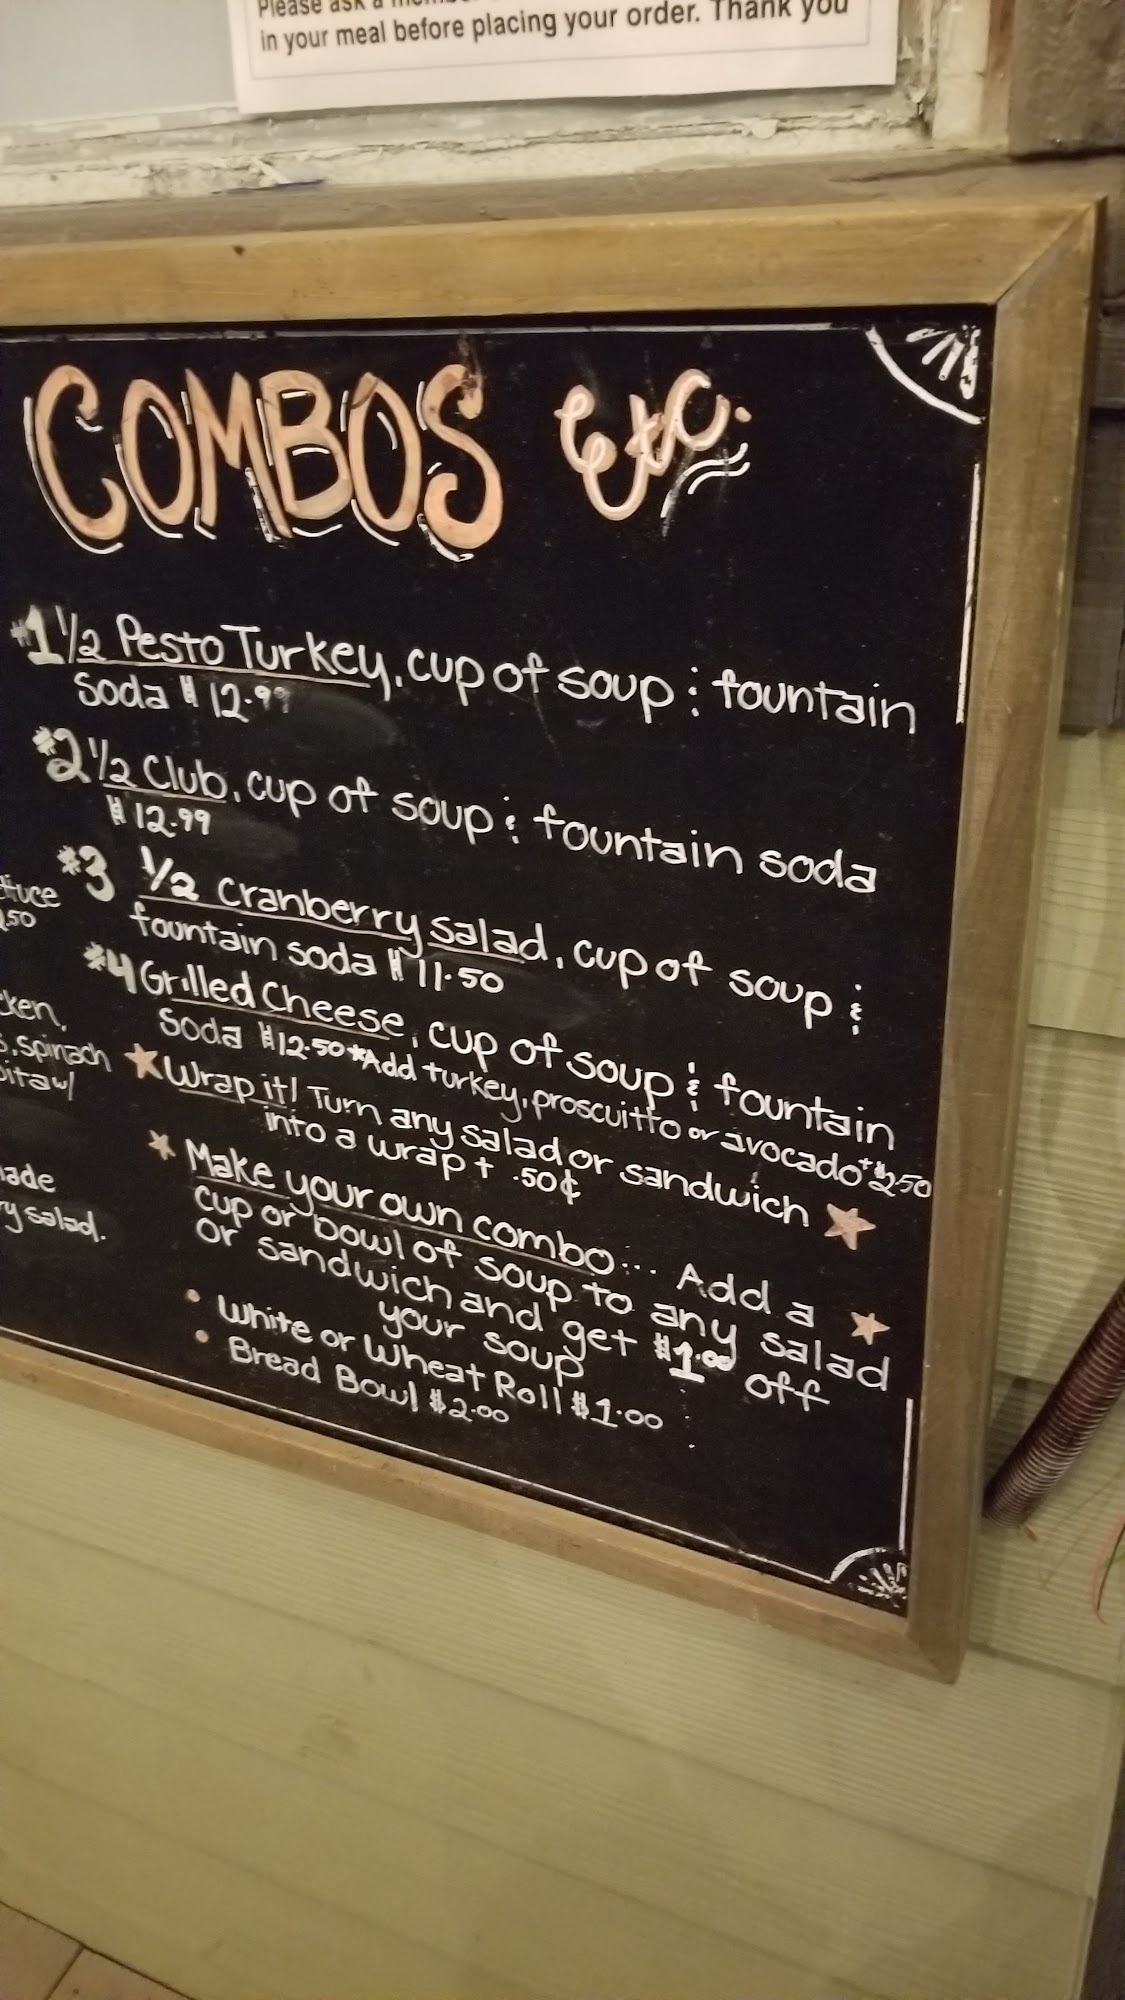 Please ask a
in your meal before placing your order. Thank you
COMBOS Etc.
#1 1/2 Pesto Turkey, cup of soup & fountain
soda $12.99
#2 1/2 Club, cup of soup & fountain soda
$12.99
#3 1/2 cranberry salad, cup of soup &
fountain soda $11.50
#4 Grilled Cheese, cup of soup & fountain
soda $12.50 *Add turkey, proscuitto or avocado +$2.50
Wrap it! Turn any salad or sandwich
into a wrap + .50¢
Make your own combo... Add a
cup or bowl of soup to any salad
or sandwich and get $1.00 off
your soup
• White or Wheat Roll $1.00
• Bread Bowl $2.00
spinach
ry salad.